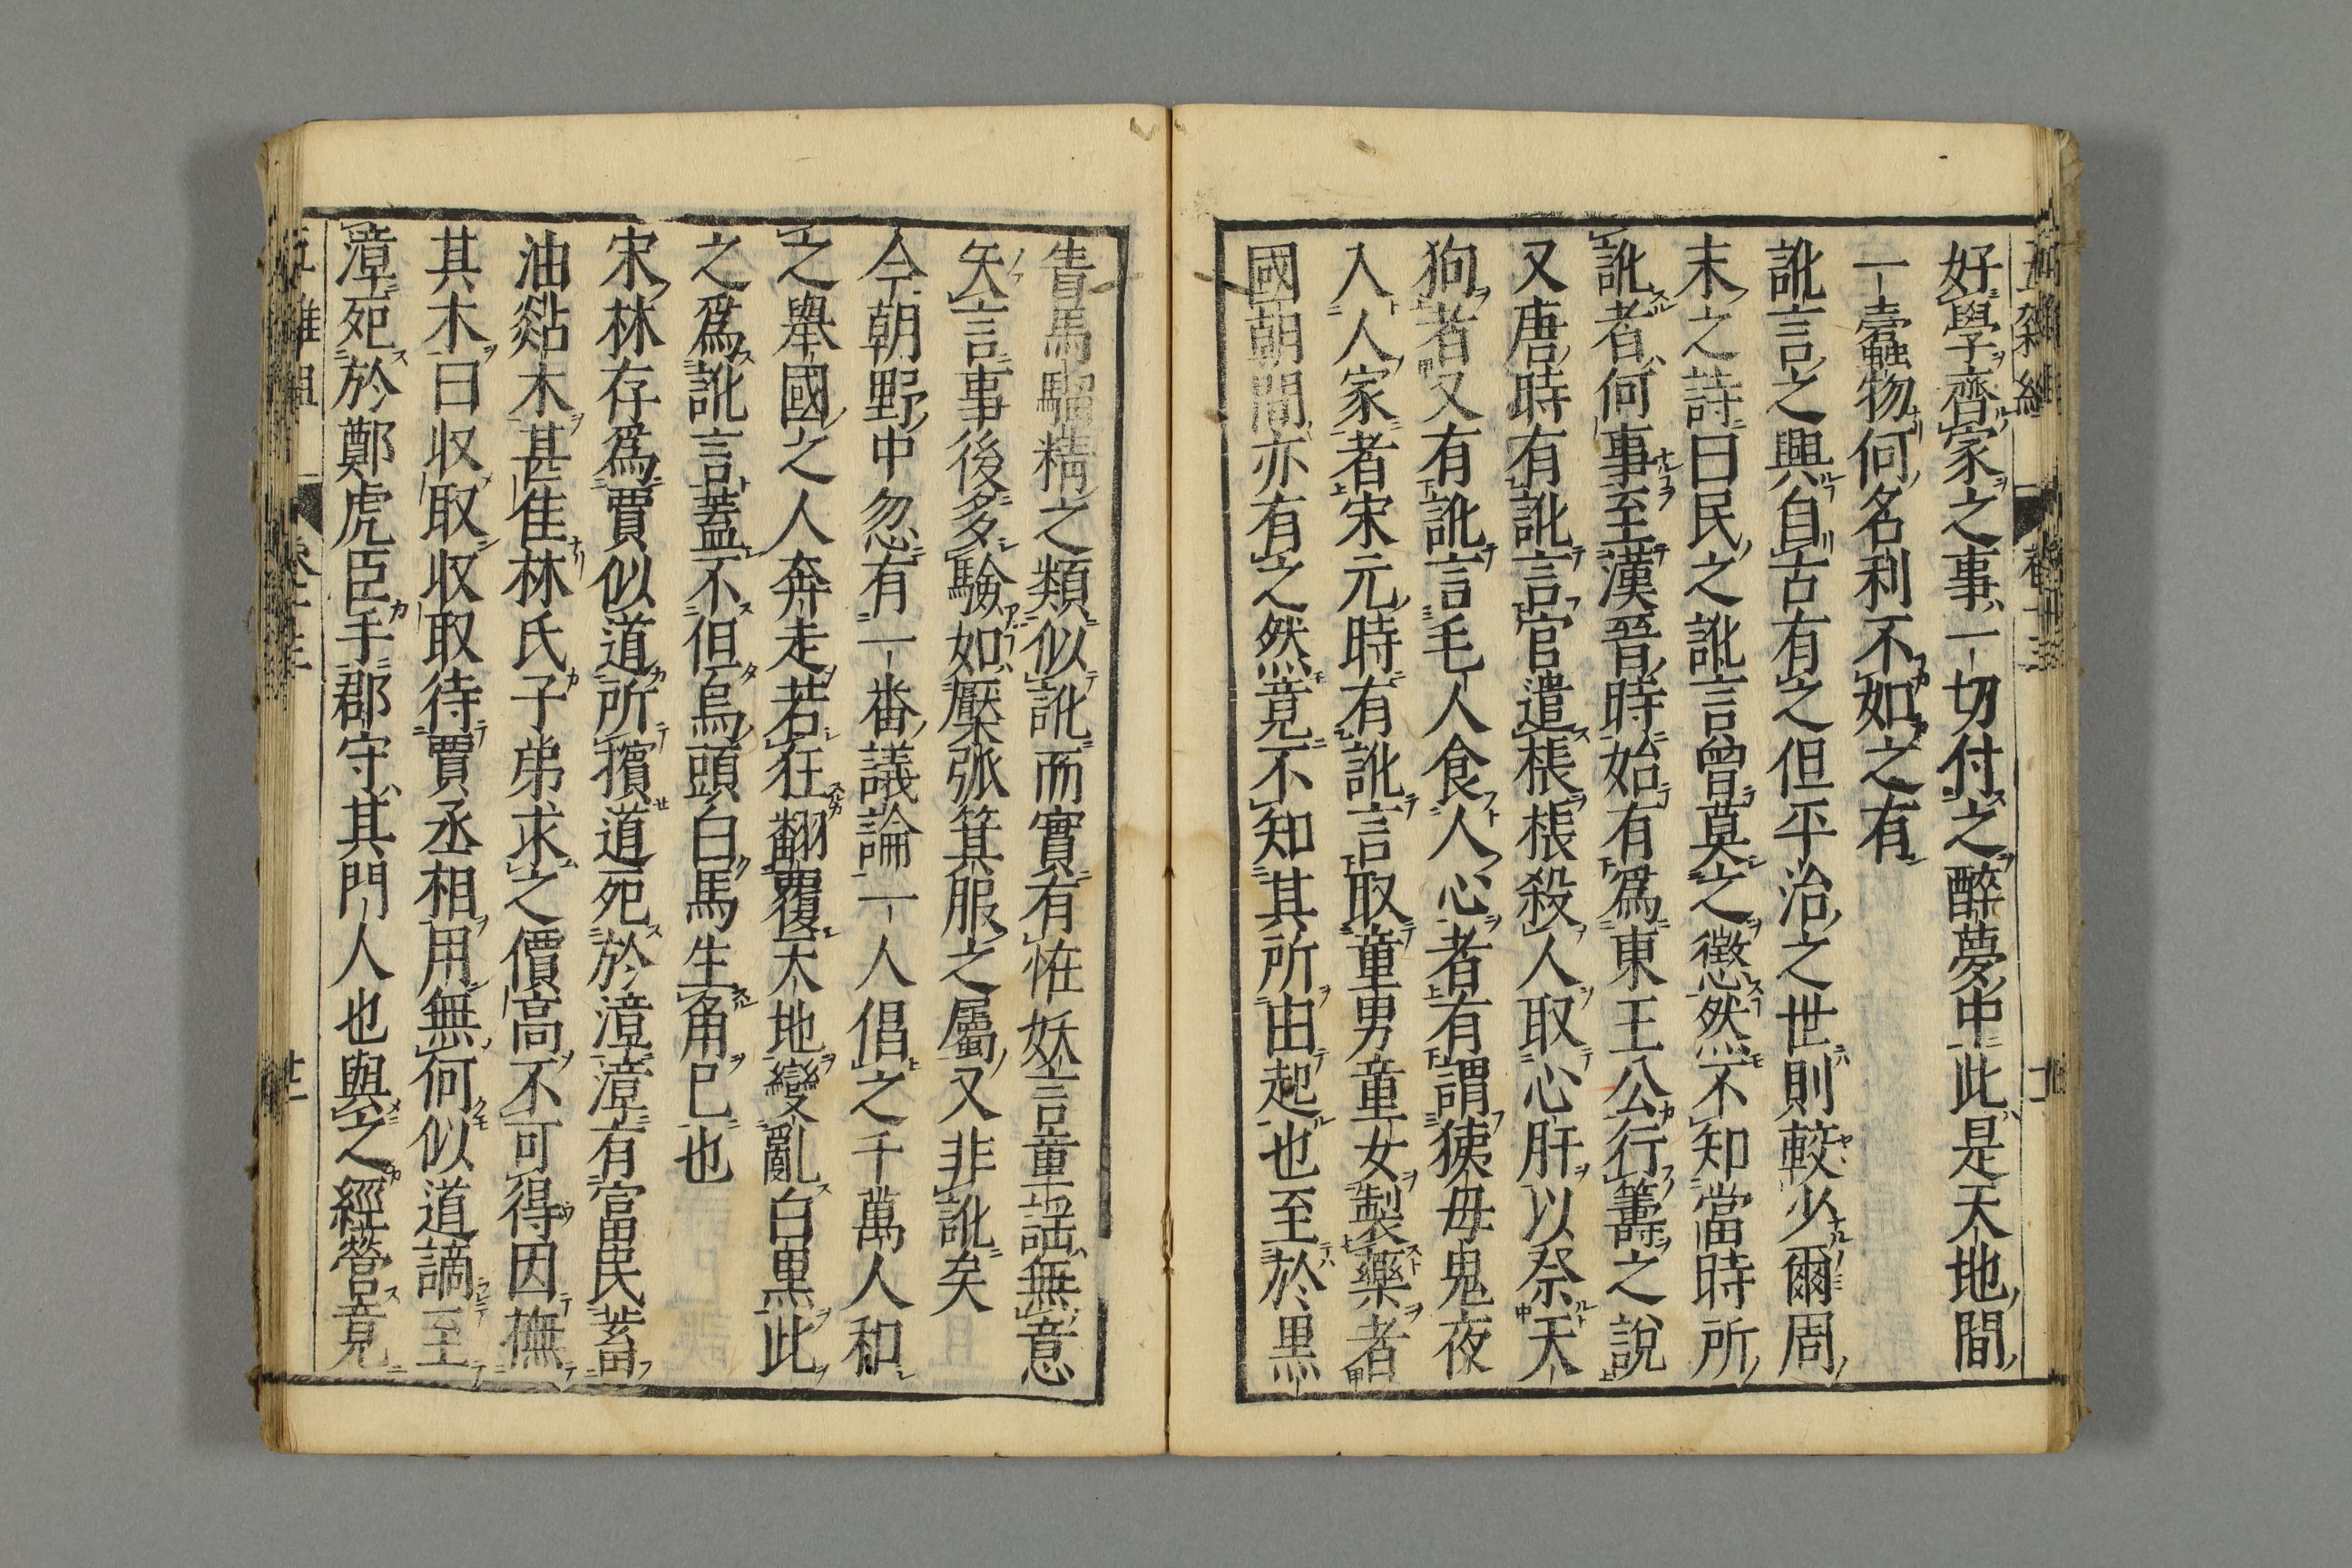 好學齊家之事一切付之醉夢中此是天地間
一蠧物何名利不如之有
訛言之興自古有之但平治之世則較少爾周
末之詩曰民之訛言曾莫之懲然不知當時所
訛者何事至漢晉時始有爲東王公行籌之說
又唐時有訛言官遣棖棖殺人取心肝以祭天
狗者又有訛言毛人食人心者有謂㺊母鬼夜
入人家者宋元時有訛言取童男童女製藥者
國朝間亦有之然竟不知其所由起也至於黒
眚馬騮精之類似訛而實有怪妖言童謡無意
矢言事後多驗如檿弧箕服之屬又非訛矣
今朝野中忽有一番議論一人倡之千萬人和
之舉國之人奔走若狂翻覆天地變亂白黒此
之爲訛言蓋不但烏頭白馬生角已也
宋林存爲賈似道所擯道死於漳漳有富民蓄
油㯠木甚佳林氏子弟求之價高不可得因撫
其木曰收取收取待賈丞相用無何似道謫至
漳死於鄭虎臣手郡守其門人也與之經營竟